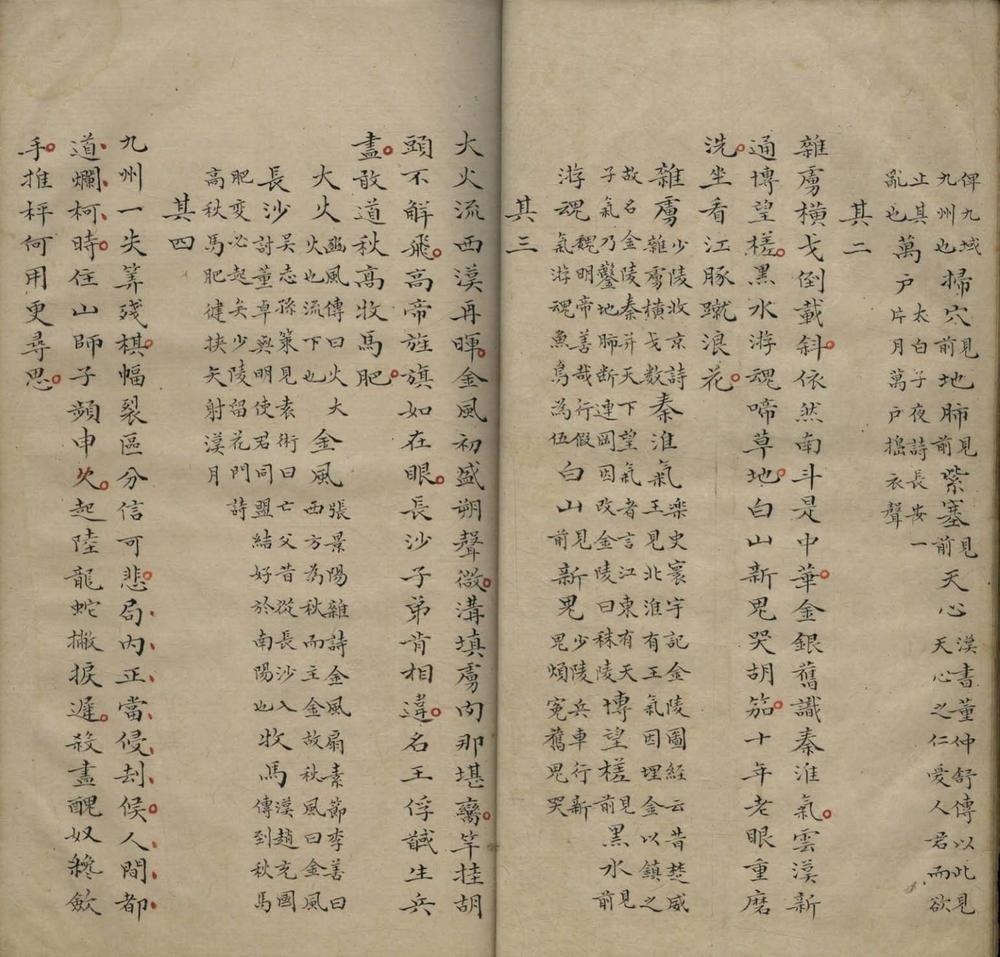 俾九域九州也掃穴見前地肺見前紫塞見前天心漢書董仲舒傳以此見天心之仁愛人君而欲
止其亂也萬戶太白子夜詩長安一片月萬戶搗衣聲
其二
雜虜橫戈倒載斜依然南斗是中華金銀舊識秦淮氣雲漢新
通博望槎黑水游魂啼草地白山新鬼哭胡笳十年老眼重磨
洗坐看江豚蹴浪花
雜虜少陵收京詩雜虜橫戈數秦淮氣樂史寰宇記金陵圖經云昔楚威王見北淮有王氣因埋金以鎮之
故名金陵秦并天下望氣者言江東有天子氣乃鑿地肺斷連岡因改金陵曰秣陵博望槎見前黑水見前
游魂魏明帝善哉行假氣游魂魚鳥為伍白山見前新鬼少陵兵車行新鬼煩冤舊鬼哭
其三
大火流西漢再暉金風初盛朔聲微溝填虜肉那堪臠竿挂胡
頭不解飛高帝旌旗如在眼長沙子弟肯相違名王俘馘生兵
盡敢道秋高牧馬肥
大火豳風傳曰火大火也流下也金風張景陽雜詩金風扇素節李善曰西方為秋而主金故秋風曰金風
長沙吳志孫策見袁術曰亡父昔從長沙入討董卓與明使君同盟結好於南陽也牧馬漢趙充國傳到秋馬
肥變必起矣少陵留花門詩高秋馬肥健挾矢射漢月
其四
九州一失筭殘棋幅裂區分信可悲局內正當侵刦候人間都
道爛柯時住山師子頻申久起陸龍蛇撇捩遲殺盡醜奴纔歛
手推枰何用更尋思